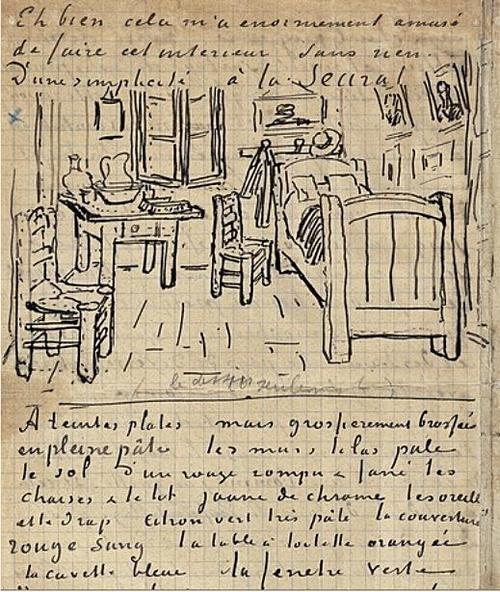 Eh bien cela m'a enormement amusé
de faire cet interieur sans rien.
D'une simplicité à la Seurat
A teintes plates mais grossierement brossées
en pleine pâte les murs lilas pale
le sol d'un rouge rompu & fané les
chaises & le lit jaune de chrome les oreille
et le drap citron vert très pâle la couverture
rouge sang la table à toilette orangée
la cuvette bleue la fenetre verte